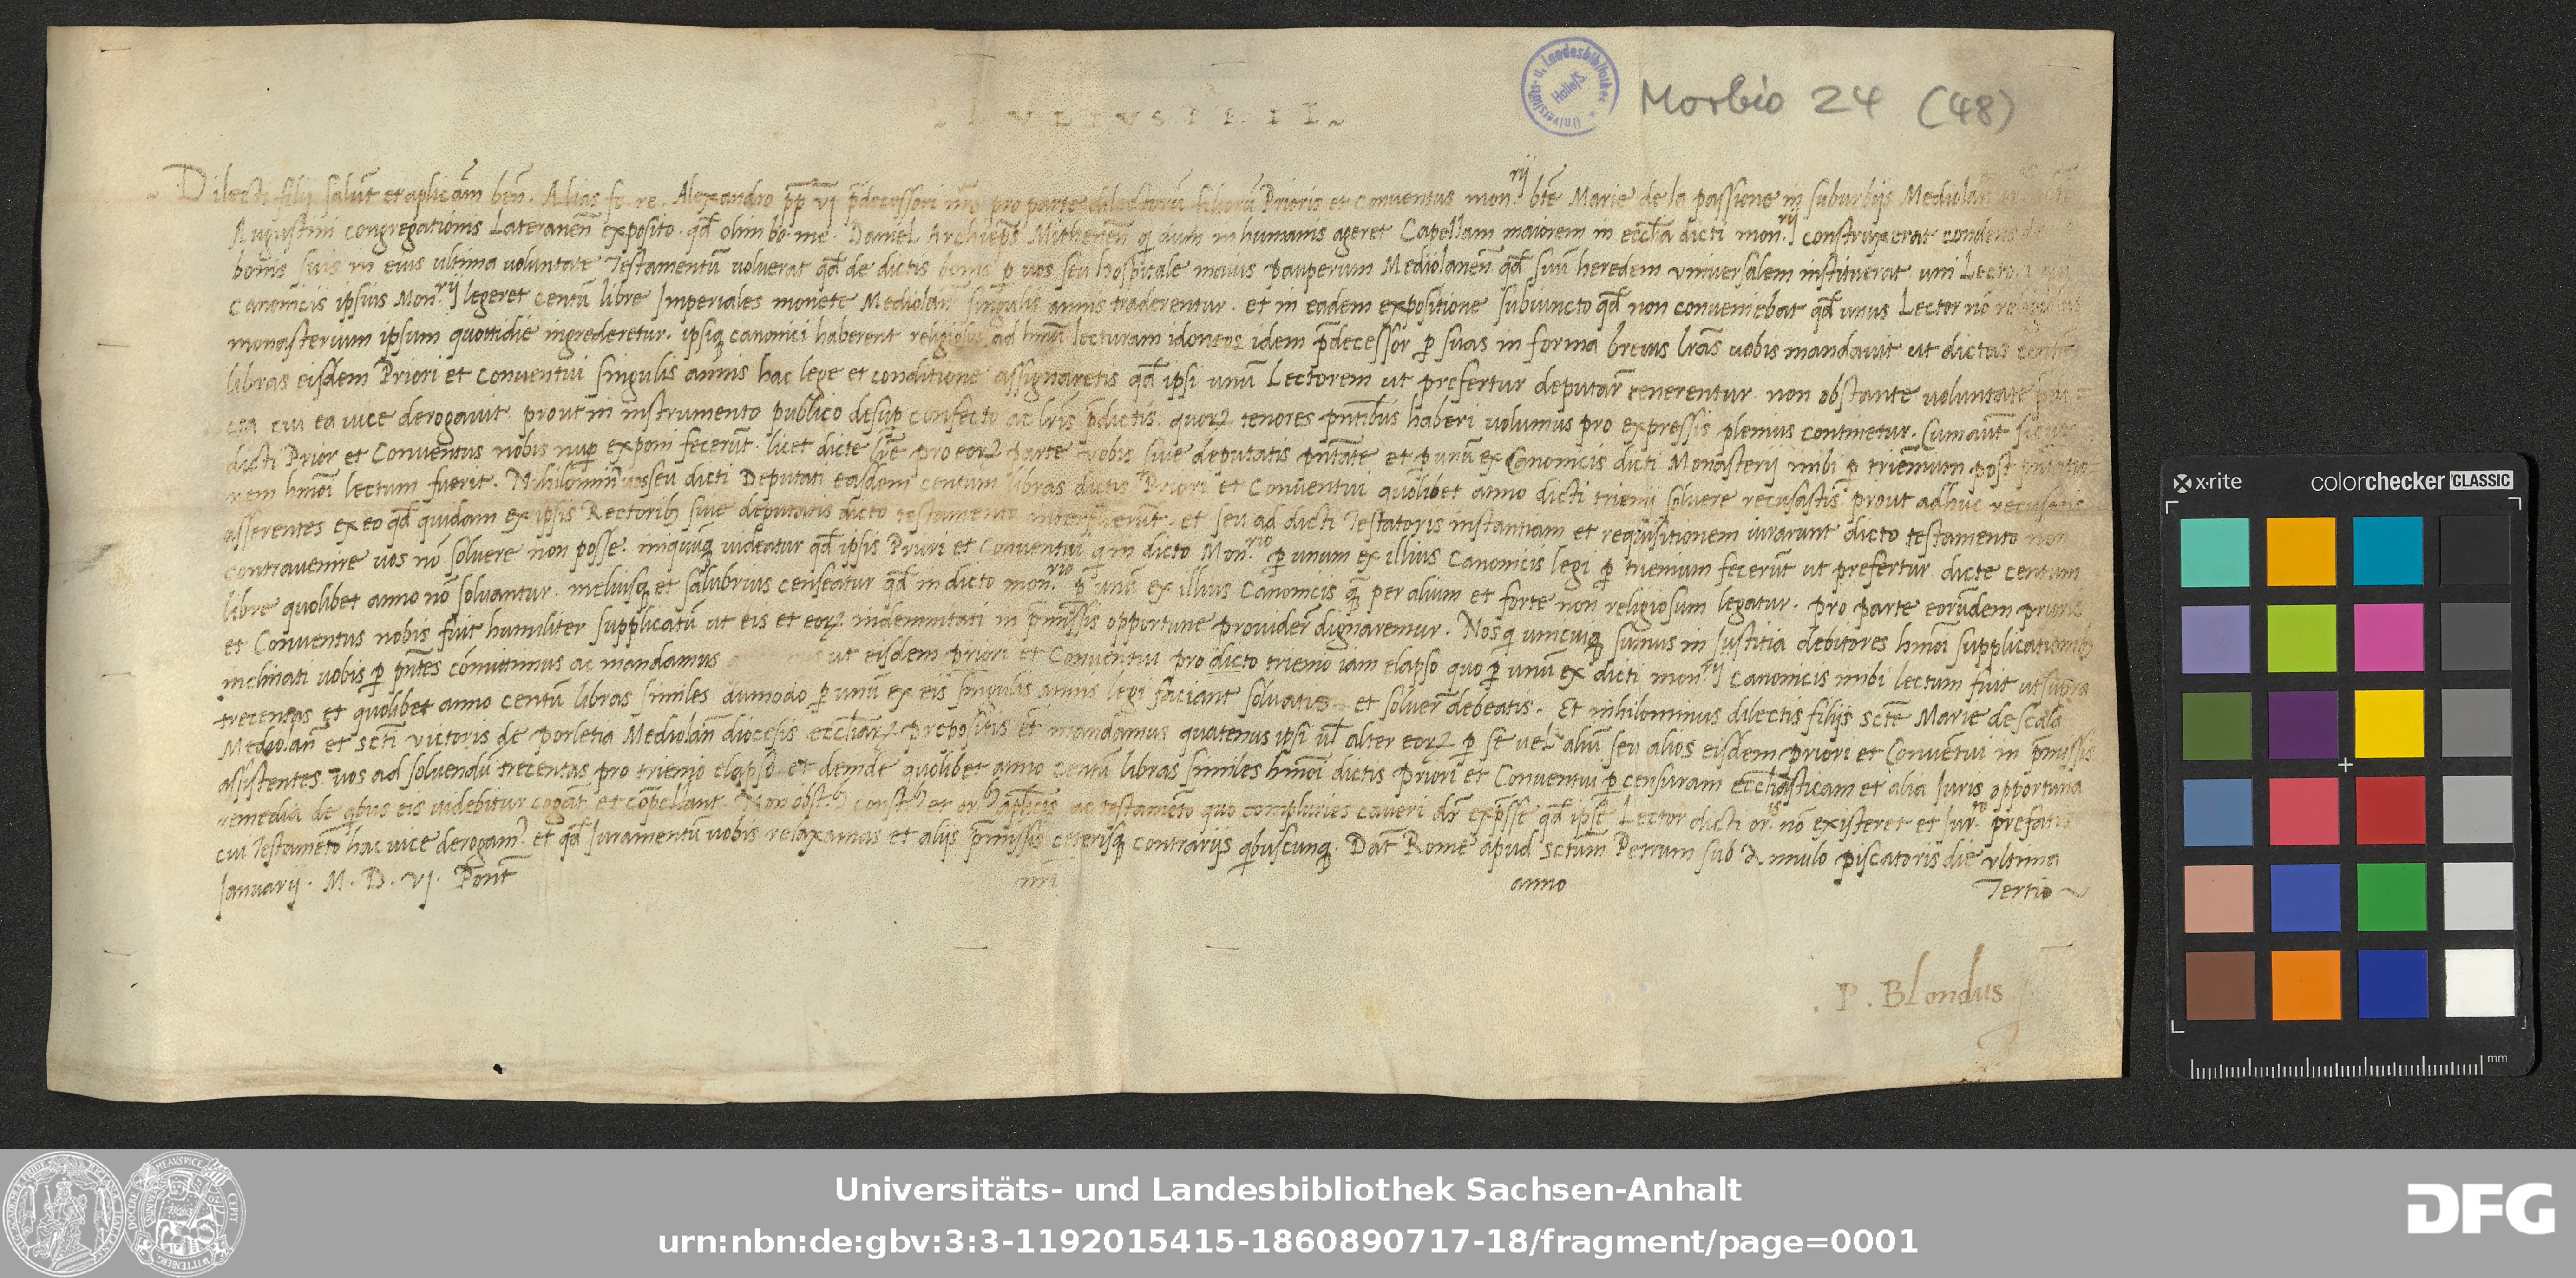 IVLIVS PP. II
Morbio 24 (48)
Universitäts- u. Landesbibliothek Halle/S.
Dilecti filij salut̄ et aplicam ben̄. Alias fe. re. Alexandro pp̄ vj p̄decessori nr̄o pro parte dilectorū filiorū Prioris et Conventus mon.rij bt̄e Marie de la passione in suburbijs Mediolan̄
Augustini congregationis Lateranen̄ exposito. qd̄ olim bo. me. Daniel Archiep̄s Mithenen̄ q dum in humanis ageret Capellam maiorem in eccl̄ia dicti mon.rij construxerat condens de
bonis suis in eius ultima voluntate Testamentū voluerat qd̄ de dictis bonis p vos seu hospitale maius pauperum Mediolanen̄ qd̄ suū heredem vniversalem instituerat uni Lectori
canonicis ipsius Mon.rij legeret centū libre Imperiales monete Mediolan̄ singulis annis traderentur. et in eadem expositione subiuncto qd̄ non conveniebat qd̄ unus Lector nō
monasterium ipsum quottidie ingrederetur. ipsiq canonici haberent religiosos ad hmōi lecturam idoneos idem p̄decessor p suas in forma brevis lr̄as vobis mandavit ut dictas
libras eisdem Priori et conventui singulis annis hac lege et conditione assignaretis qd̄ ipsi unū Lectorem ut prefertur deputar̄ tenerentur non obstante voluntate
cui ea vice derogavit prout in instrumento publico desup confecto ac lr̄is p̄dictis. quorꝝ tenores pn̄tibus haberi volumus pro expressis plenius continetur. Cum aut̄
dicti Prior et Conventus nobis nup exponi fecerūt. licet dicte lr̄e pro eorꝝ parte vobis sive deputatis pn̄tate et p unū ex Canonicis dicti Monasterij inibi p triennium post
hmōi lectum fuerit. Nihilomin̄ vos seu dicti Deputati easdem centum libras dictis Priori et Conventui quolibet anno dicti trienij solvere recusastis prout adhuc recusatis
asserentes ex eo qd̄ quidam ex ipsis Rectoribꝫ sive deputatis dicto testamento interfuerūt. et seu ad dicti Testatoris instantiam et requisitionem iurarunt dicto testamento non
contravenire vos nō solvere non posse. iniquūq videatur qd̄ ipsis Priori et Conventui q in dicto Mon.rio p unum ex illius Canonicis legi p trienium fecerūt ut prefertur dicte centum
libre quolibet anno nō solvantur. meliusq et salubrius censeatur qd̄ in dicto mon.rio p unū ex illius Canonicis q̄ per alium et forte non religiosum legatur. pro parte eorūdem prioris
et Conventus nobis fuit humiliter supplicatū ut eis et eorꝝ indemnitati in p̄missis opportune provider̄ dignaremur. Nos q unicuiq sumus in Justitia debitores hmōi supplicationibꝫ
inclinati vobis p pn̄tes cōmittimus ac mandamus ut eisdem priori et Conventui pro dicto trienio iam elapso quo p unū ex dicti mon.rij Canonicis inibi lectum fuit ut supra
trecentas et quolibet anno centū libras similes dūmodo p unū ex eis singulis annis legi faciant solvatis et solver̄ debeatis. Et nihilominus dilectis filijs sct̄e Marie de scala
Mediolan̄ et sct̄i victoris de porletia Mediolan̄ diocesis eccl̄iarꝝ prepositis et mandamus quatenus ipsi ul̄ alter eorꝝ p se vel aliū seu alios eisdem priori et Conventui in p̄missis
assistentes vos ad solvendū trecentas pro trienio elapso et deinde quolibet anno centū libras similes hmōi dictis priori et Conventui p censuram eccl̄iasticam et alia Juris opportuna
remedia de qbus eis videbitur cogāt et cōpellant. Non obst.bꝫ const.bꝫ et or.bꝫ aplicis ac testamēto quo compluries caveri dr̄ exp̄sse qd̄ ipse Lector dicti or.is nō existeret et Jur.to prefatis
cui Testamēto hac vice derogam.? et qd̄ Juramentū vobis relaxamus et alijs p̄missis ceterisq contrarijs qbuscunq. Dat̄ Rome apud sctum Petrum sub Annulo piscatoris die ultima
Januarij. M. D. VJ. Pont̄ nr̄i anno Tertio
. P. Blondus
x-rite colorchecker CLASSIC
mm
Universitäts- und Landesbibliothek Sachsen-Anhalt
urn:nbn:de:gbv:3:3-1192015415-1860890717-18/fragment/page=0001
DFG